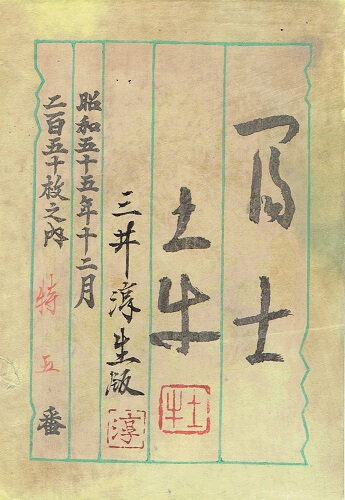 富士
土牛
土牛
三井淳生版
淳
昭和五十五年十二月
二百五十枚之内 特五番